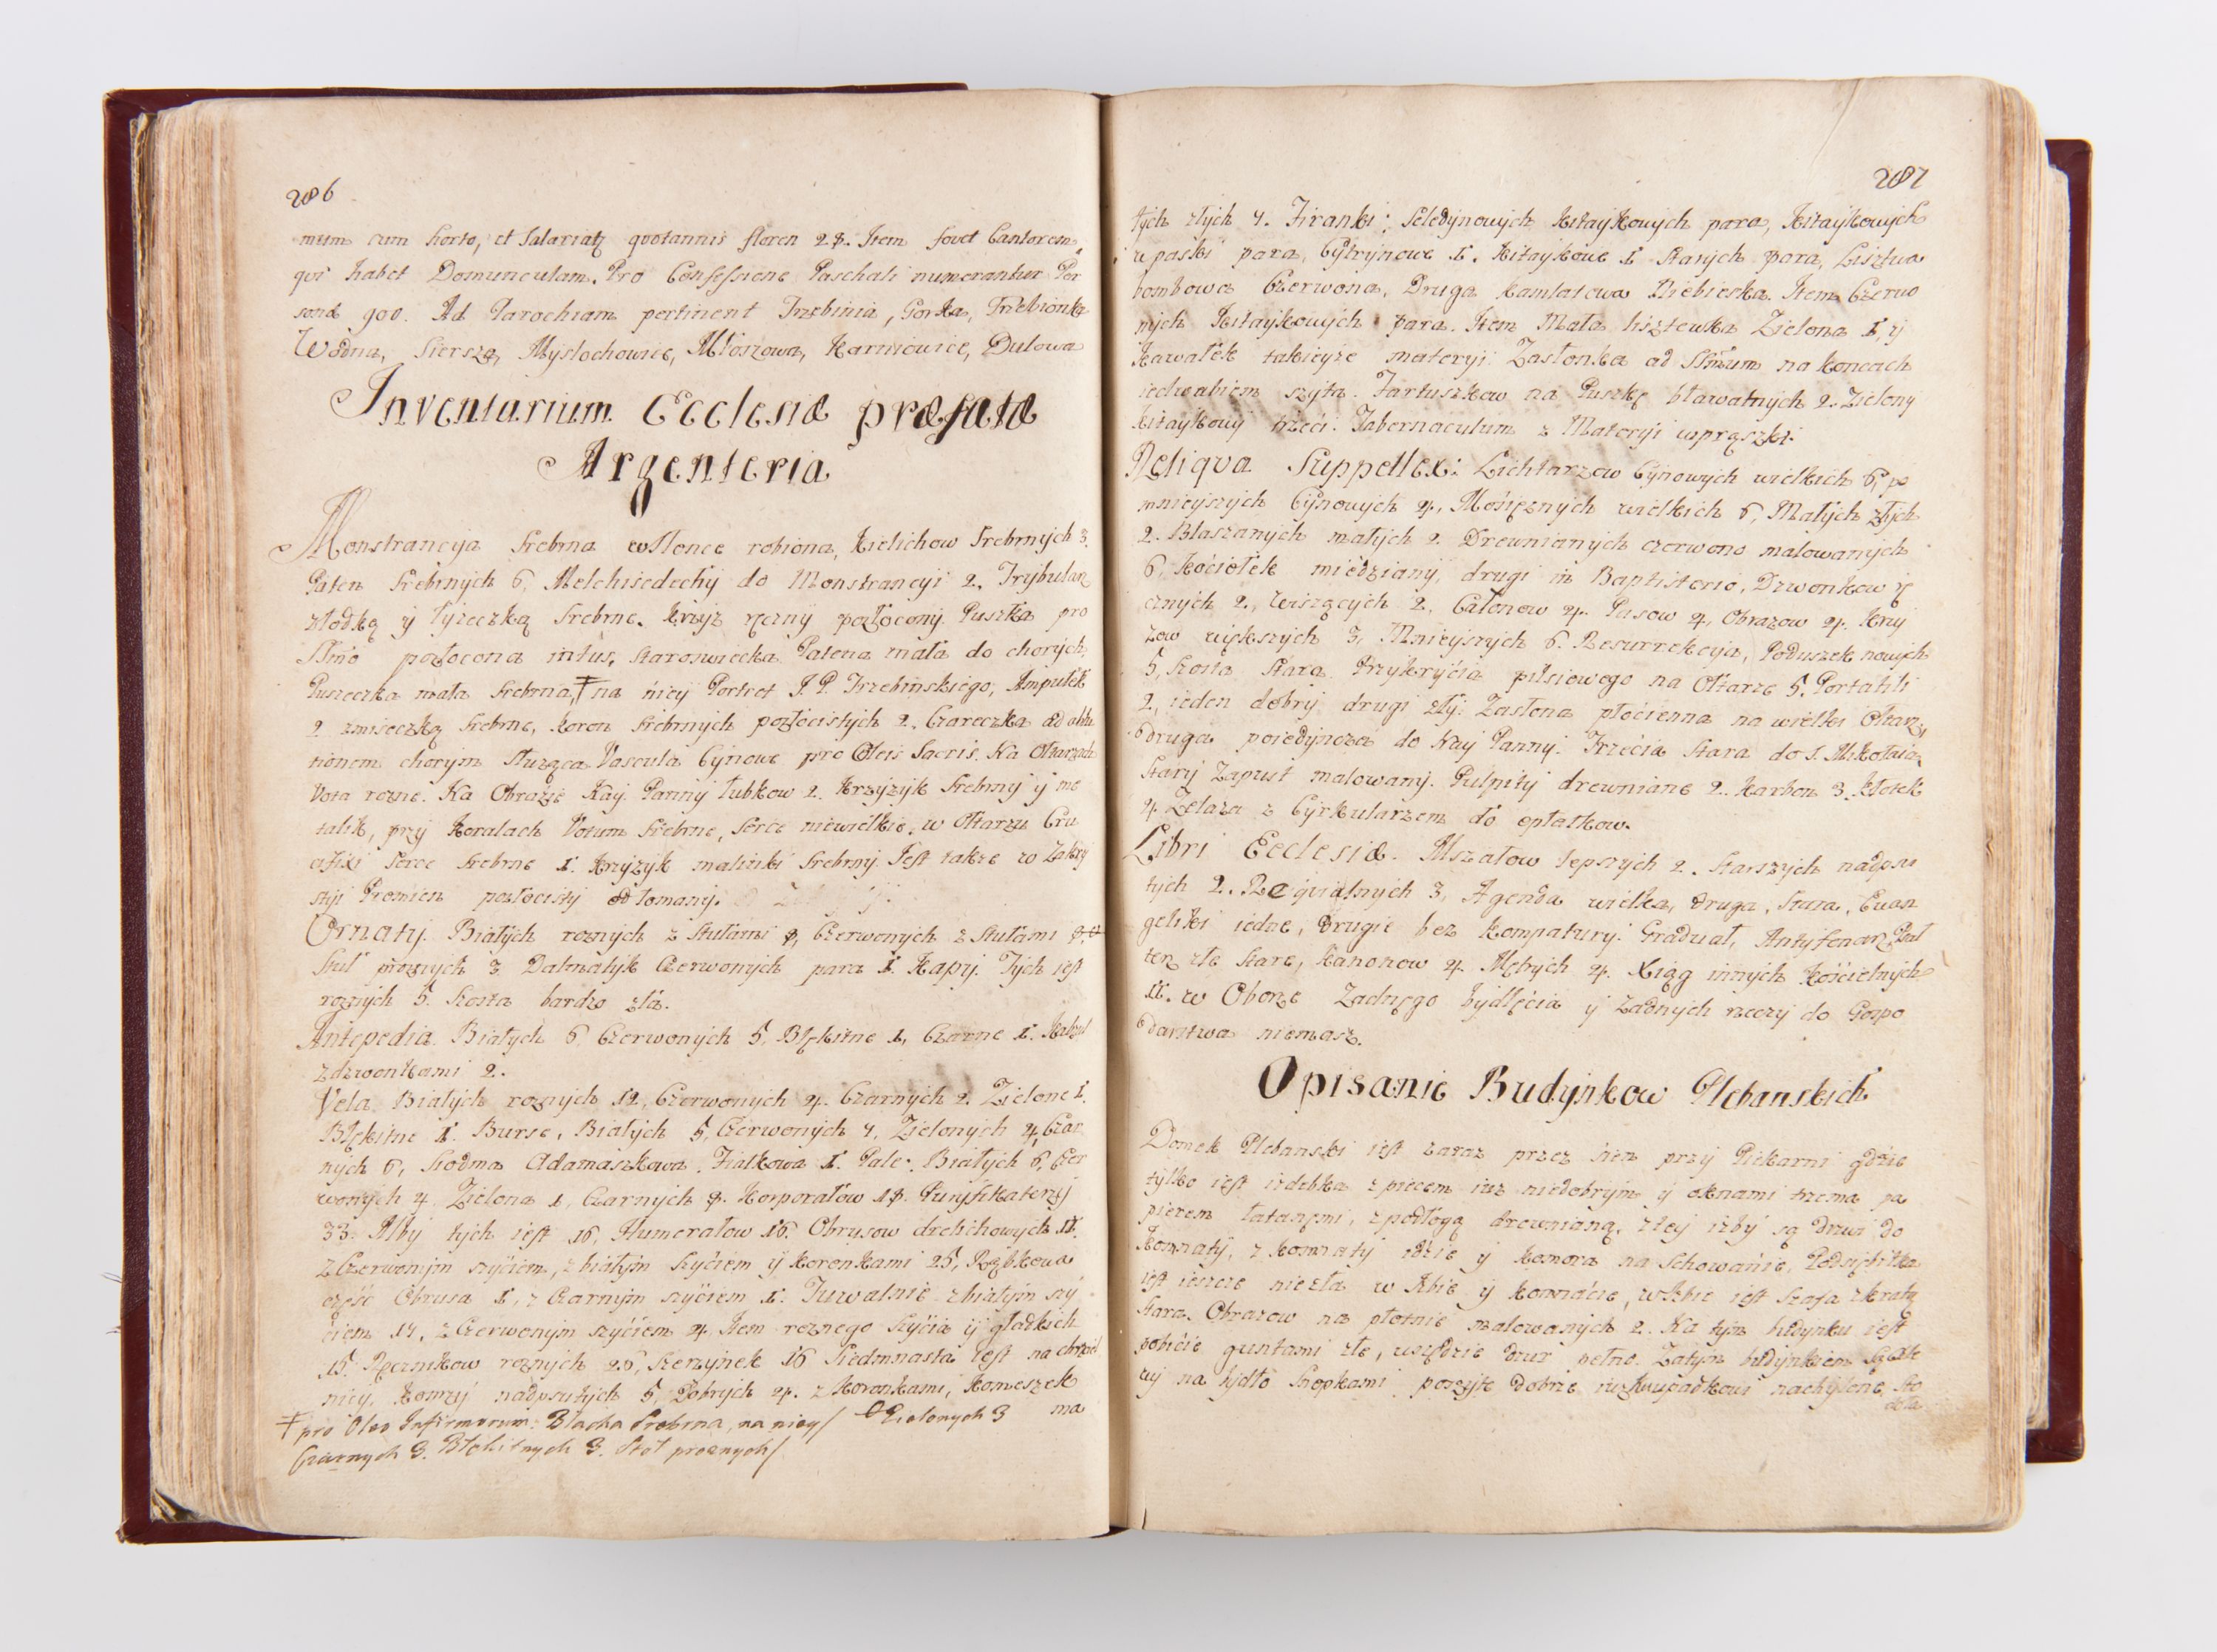 286
mum cum horto, et Salariatq quotannis floren 28. Item fovet Cantorem,
qui habet Domunculam. Pro Confessione Paschali numerantur Per
sonæ 900. Ad Parochiam pertinent Trzebinia, Gorka, Trzebionka
Wodna, Siersza, Myslochowice, Młoszowa, Karniowice, Dulowa
Inventarium Ecclesiæ præfatæ
Argenteria
Monstrancyja Srebrna w Słonce robiona, Kielichow Srebrnych 3.
Paten Srebrnych 6, Melchisedechy do Monstrancyi 2. Trybularz
złodką y łyżeczką Srebrne. Krzyż ręczny pozłocony. Puszka pro
SSmo pozłocona intus, Staroswiecka. Patena mała do chorych,
Puszeczka mała Srebrna, ‡ na niey Portret J. P. Trzebinskiego, Ampułek
2 zmiseczką Srebrne, Koron Srebrnych pozłocistych 2. Czareczka ad ablu
tionem chorym Służąca Vascula Cynowe pro Oleis Sacris. Na Ołtarzach
Vota rozne. Na Obrazie Nay. Panny Łubkow 2. Krzyżyk Srebrny y me
talik, przy Koralach Votum Srebrne, Serce niewielkie, w Ołtarzu Cru
cifixi Serce Srebrne 1. Krzyżyk malinki Srebrny. Jest takze w Zakry
styi Promien pozłocisty odłomany.
Ornaty. Białych roznych z Stułami 8, Czerwonych z Stułami 8,
Stuł proznych 3. Dalmatyk Czerwonych para 1. Kapy. Tych jest
roznych 5. Szosta bardzo zła.
Antepedia. Białych 6. Czerwonych 5, Błękitne 1, Czarne 1.
z dzwonkami 2.
Vela. Białych roznych 12, Czerwonych 4. Czarnych 2. Zielone 1.
Błękitne 1. Burse, Białych 5, Czerwonych 7, Zielonych 4, Czar
nych 6, Siodma Adamaszkowa, Fiałkowa 1. Pale: Białych 6, Czer
wonych 4. Zielona 1, Czarnych 8. Korporałow 18. Puryfikaterzy
33. Alby tych jest 16, Humerałow 16. Obrusow drelichowych 11.
z Czerwonym szyciem, z białym szyciem y koronkami 25, Rąbkowa
część Obrusa 1, z Czarnym szyciem 1. Tuwalnie z białym szy
ciem 17, z Czerwonym szyciem 4. Item roznego szycia y gładkich
15. Ręcznikow roznych 26, Szerzynek 16 Siedmnasta jest na chrzciel
nicy, Komży nadpsutych 5, Dobrych 4. z Koronkami, Komeszek
ma
‡ pro Oleo Infirmorum: Blacha Srebrna, na niey/ Zielonych 3
Czarnych 3. Błękitnych 3. Stół proznych/
287
łych złych 7. Firanki: Seledynowych Kitaykowych para, Kitaykowych
w paski para, Cytrynowe 1. Kitaykowe 1 Starych para, Lisztwa
bombowa Czerwona, Druga kamlatowa Niebieska. Item Czerwo
nych Kitaykowych para. Item Mała lisztewka Zielona 1, y
kawałek takieyże materyi. Zasłonka ad SSmum na koncach
iedwabiem szyta. Fartuszkow na Puszkę bławatnych 2. Zielony
Kitaykowy trzeci. Tabernaculum z Materyi wprążki.
Reliqva Suppellex: Lichtarzow Cynowych wielkich 6, po
mnieyszych Cynowych 4, Mosięznych wielkich 6, Małych złych
2. Blaszanych małych 2. Drewnianych czerwono malowanych
6, Kociołek miedziany, drugi in Baptisterio, Dzwonkow rę
cznych 2, Wiszących 2, Całonow 4. Pasow 4, Obrazow 4. Krzy
żow większych 3, Mnieyszych 6. Resurrekcyja, Poduszek nowych
5, Szosta Stara. Przykrycia pilsiowego na Ołtarze 5. Portatili
2, ieden dobry, drugi zły. Zasłona płocienna na wielki Ołtarz,
druga poiedyncza do Nay Panny. Trzecia Stara do S. Mikołaia,
Stary Zapust malowany. Pulpity drewniane 2. Karbon 3. Kłotek
4. Żelaza z Cyrkularzem do opłatkow.
Libri Ecclesiæ. Mszałow lepszych 2. Starszych nadpsu
tych 2. Reqvialnych 3, Agenda wielka, druga, Stara, Ewan
geliki iedne, drugie bez kompatury. Graduał, Antyfonarz, Psał
terz złe Stare, Kanonow 4. Metrych 4. Xiąg innych Kościelnych
11. w Oborze Zadnego bydlęcia y Zadnych rzeczy do Gospo
darstwa niemasz.
Opisanie Budynkow Plebanskich
Domek Plebanski iest zaraz przez sien przy Piekarni gdzie
tylko iest izdebka z piecem iuz niedobrym y oknami trzema pa
pierem łatanemi, z podłogą drewnianą, z tey izby są drzwi do
Komnaty, z Komnaty idzie y komora na Schowanie, Podsiębitka
iest ieszcze niezła w Izbie y komnacie, w Izbie iest Szafa z kratą
Stara. Obrazow na płotnie malowanych 2. Na tym budynku iest
pobicie guntami złe, wszędzie dziur pełno. Zatym budynkiem
na bydło Snopkami poszyte dobrze iuz kupadkowi nachylone, Sto
doła